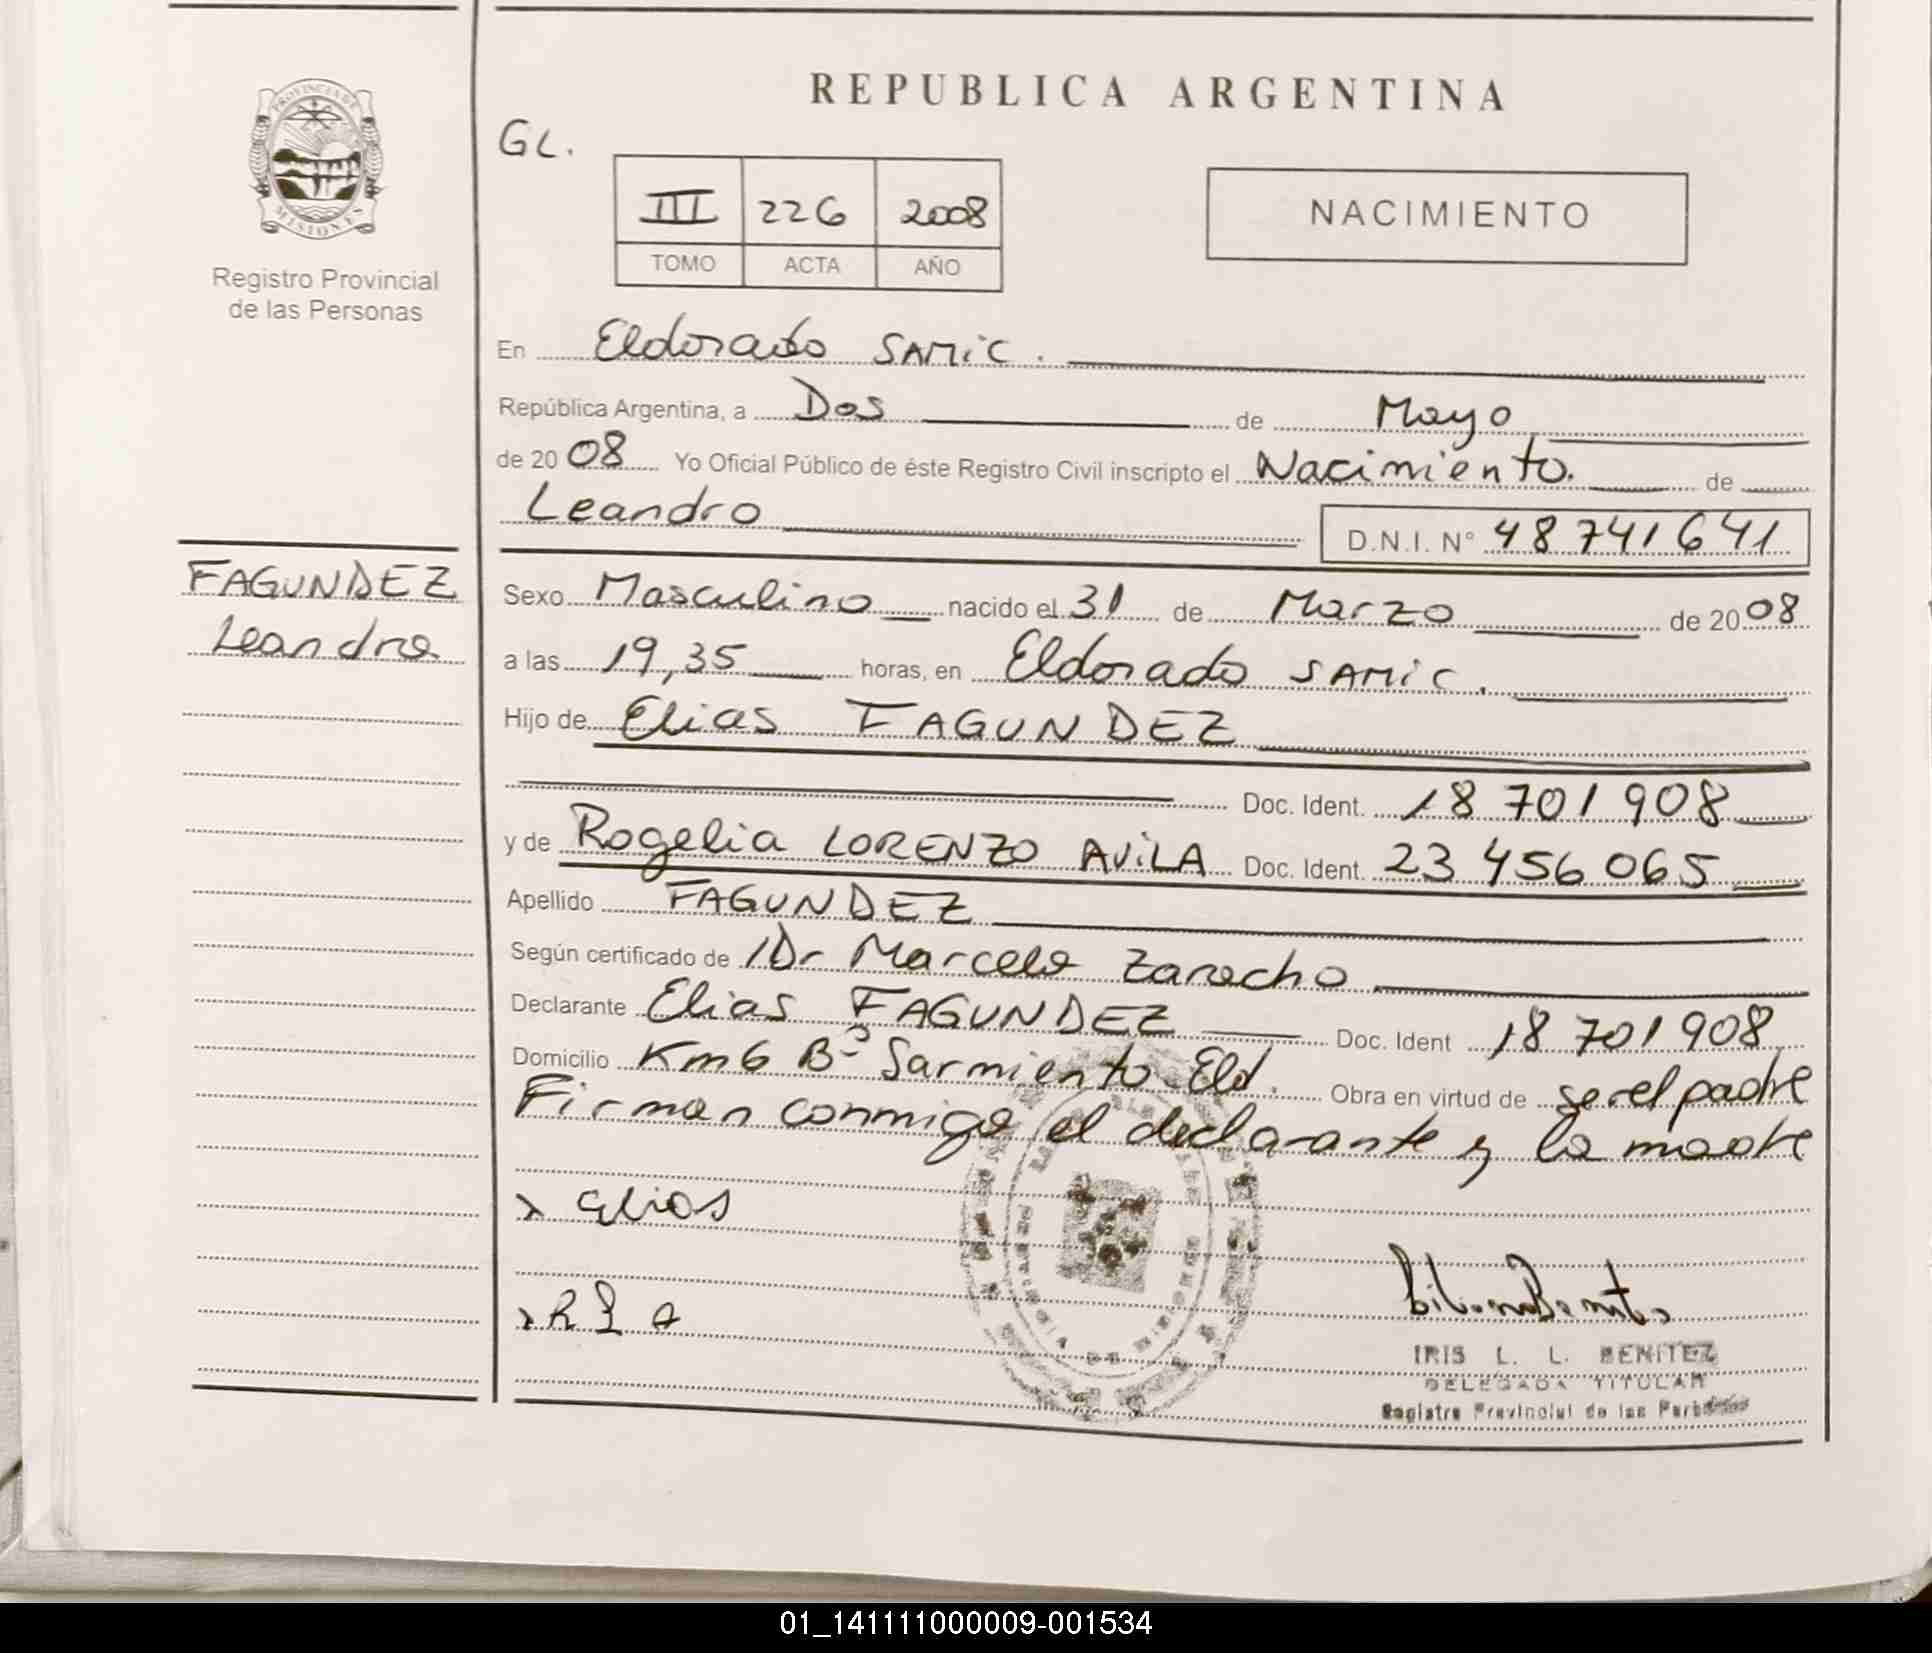 REPUBLICA ARGENTINA
PROVINCIA DE
MISIONES
Registro Provincial
de las Personas
GL.
III 226 2008
TOMO ACTA AÑO
NACIMIENTO
En Eldorado SAMiC.
República Argentina, a Dos de Mayo
de 2008 Yo Oficial Público de éste Registro Civil inscripto el Nacimiento. de
Leandro D.N.I. N° 48 741 641
FAGUNDEZ
Leandro
Sexo Masculino nacido el 31 de Marzo de 2008
a las 19,35 horas, en Eldorado SAMiC.
Hijo de Elias FAGUNDEZ
Doc. Ident. 18 701 908
y de Rogelia LORENZO AViLA Doc. Ident. 23 456 065
Apellido FAGUNDEZ
Según certificado de Dr Marcelo Zaracho
Declarante Elias FAGUNDEZ Doc. Ident 18 701 908
Domicilio Km 6 B° Sarmiento Eld. Obra en virtud de ser el padre
Firman conmigo el declarante y la madre
x Elias
x R L A
IRIS L. L. BENITEZ
DELEGADA TITULAR
Registro Provincial de las Personas
01_141111000009-001534